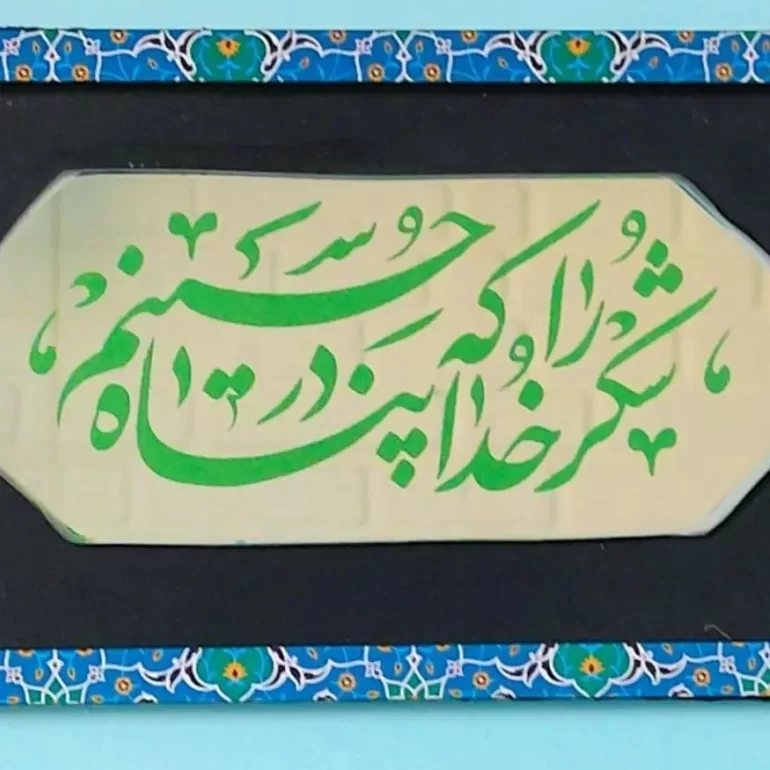 شکر خدا را که در پناه حسینم